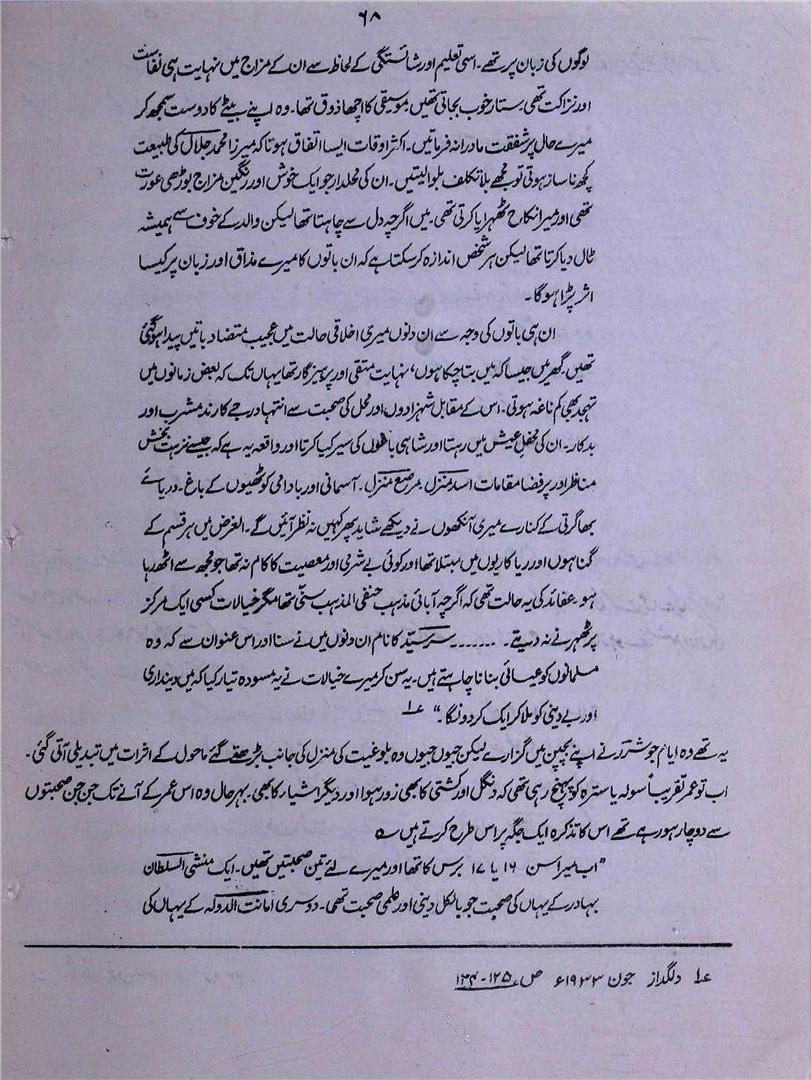 ۶۸
لوگوں کی زبان پر تھے۔ اسی تعلیم اور شائستگی کے لحاظ سے ان کے مزاج میں نہایت ہی نفاست
اور نزاکت تھی۔ ستار خوب بجاتی تھیں، موسیقی کا اچھا ذوق تھا۔ وہ اپنے بیٹے کا دوست سمجھ کر
میرے حال پر شفقت مادرانہ فرماتیں۔ اکثر اوقات ایسا اتفاق ہوتا کہ میرزا محمد جلال کی طبیعت
کچھ ناساز ہوتی تو مجھے بلا تکلف بلوا لیتیں۔ ان کی محلدار جو ایک خوش اور رنگین مزاج بوڑھی عورت
تھی اور میرا نکاح ٹھہرایا کرتی تھی۔ میں اگرچہ دل سے چاہتا تھا لیکن والد کے خوف سے ہمیشہ
ٹال دیا کرتا تھا لیکن ہر شخص اندازہ کر سکتا ہے کہ ان باتوں کا میرے مذاق اور زبان پر کیسا
اثر پڑا ہوگا۔
ان ہی باتوں کی وجہ سے ان دنوں میری اخلاقی حالت میں عجیب متضاد باتیں پیدا ہو گئی
تھیں۔ گھر میں جیسا کہ میں بتا چکا ہوں، نہایت متقی اور پرہیزگار تھا یہاں تک کہ بعض زمانوں میں
تہجد بھی کم ناغہ ہوتی۔ اس کے مقابل شہزادوں اور محل کی صحبت سے انتہا درجے کا رند مشرب اور
بدکار۔ ان کی محفل عیش میں رہتا اور شاہی باغوں کی سیر کیا کرتا اور واقعہ یہ ہے کہ جیسے نزہت بخش
مناظر اور پرفضا مقامات اسد منزل، مرصع منزل۔ آسمانی اور بادامی کوٹھیوں کے باغ۔ دریائے
بھاگرتی کے کنارے میری آنکھوں نے دیکھے شاید پھر کہیں نہ نظر آئیں گے۔ الغرض میں ہر قسم کے
گناہوں اور ریاکاریوں میں مبتلا تھا اور کوئی بے شرمی اور معصیت کا کام نہ تھا جو مجھ سے اٹھ رہا
ہو۔ عقائد کی یہ حالت تھی کہ اگرچہ آبائی مذہب حنفی المذہب سنّی تھا مگر خیالات کسی ایک مرکز
پر ٹھہرنے نہ دیتے۔ ۔۔۔۔۔۔ سرسید کا نام ان دنوں میں نے سنا اور اس عنوان سے کہ وہ
مسلمانوں کو عیسائی بنانا چاہتے ہیں۔ یہ سن کر میرے خیالات نے یہ مسودہ تیار کیا کہ میں دینداری
اور بے دینی کو ملا کر ایک کر دونگا۔" ؏۱
یہ تھے وہ ایام جو شرر نے اپنے بچپن میں گزارے لیکن جیوں جیوں وہ بلوغیت کی منزل کی جانب بڑھتے گئے ماحول کے اثرات میں تبدیلی آتی گئی۔
اب تو عمر تقریباً سولہ یا سترہ کو پہنچ رہی تھی کہ دنگل اور کشتی کا بھی زور ہوا اور دیگر اشیار کا بھی۔ بہرحال وہ اس عمر کے آنے تک جن جن صحبتوں
سے دوچار ہو رہے تھے اس کا تذکرہ ایک جگہ پر اس طرح کرتے ہیں ؎
"اب میرا سن ۱۶ یا ۱۷ برس کا تھا اور میرے لئے تین صحبتیں تھیں۔ ایک منشی السلطان
بہادر کے یہاں کی صحبت جو بالکل دینی اور علمی صحبت تھی۔ دوسری امانت الدولہ کے یہاں کی
؏۱ دلگداز جون ۱۹۳۳ء ص ۱۲۵-۱۲۴